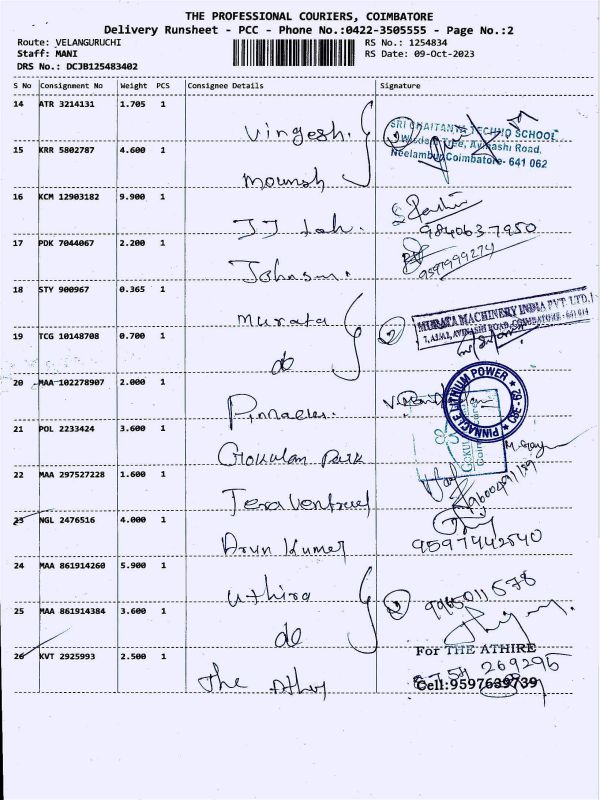 THE PROFESSIONAL COURIERS, COIMBATORE
Delivery Runsheet - PCC - Phone No.:0422-3505555 - Page No.:2
Route: VELANGURUCHI RS No.: 1254834
Staff: MANI RS Date: 09-Oct-2023
DRS No.: DCJB125483402
S No Consignment No Weight PCS Consignee Details Signature
14 ATR 3214131 1.705 1
Vingesh.
SRI CHAITANYA TECHNO SCHOOL
Avinashi Road,
Neelambur, Coimbatore- 641 062
15 KRR 5802787 4.600 1
Mounish
16 KCM 12903182 9.900 1
JJ Lah.
9840637950
17 PDK 7044067 2.200 1
Johnson.
9597999274
18 STY 900967 0.365 1
Murata
2
MURATA MACHINERY INDIA PVT. LTD.,
AVINASHI ROAD, COIMBATORE - 641 014
19 TCG 10148708 0.700 1
do
20 MAA 102278907 2.000 1
Pinnacle.
PINNACLE LITHIUM POWER ★ CBE-62 ★
21 POL 2233424 3.600 1
Gokulam Park
GOKUL
22 MAA 297527228 1.600 1
9600491159
23 NGL 2476516 4.000 1
Arun Kumar
9597442540
24 MAA 861914260 5.900 1
Uthira
2
9965011678
25 MAA 861914384 3.600 1
do
For THE ATHIRE
26 KVT 2925993 2.500 1
The Athy
269295
Cell:9597639739